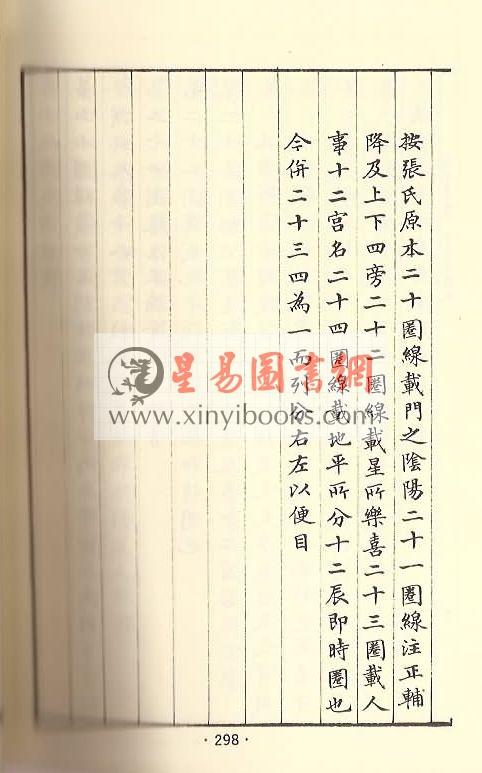 按張氏原本二十圈線載門之陰陽二十一圈線注正輔
降及上下四旁二十二圈線載星所樂喜二十三圈載人
事十二宮名二十四圈線載地平所分十二辰即時圈也
今併二十三四為一而列分右左以便目
星易圖書網
www.xinyibooks.com
·298·